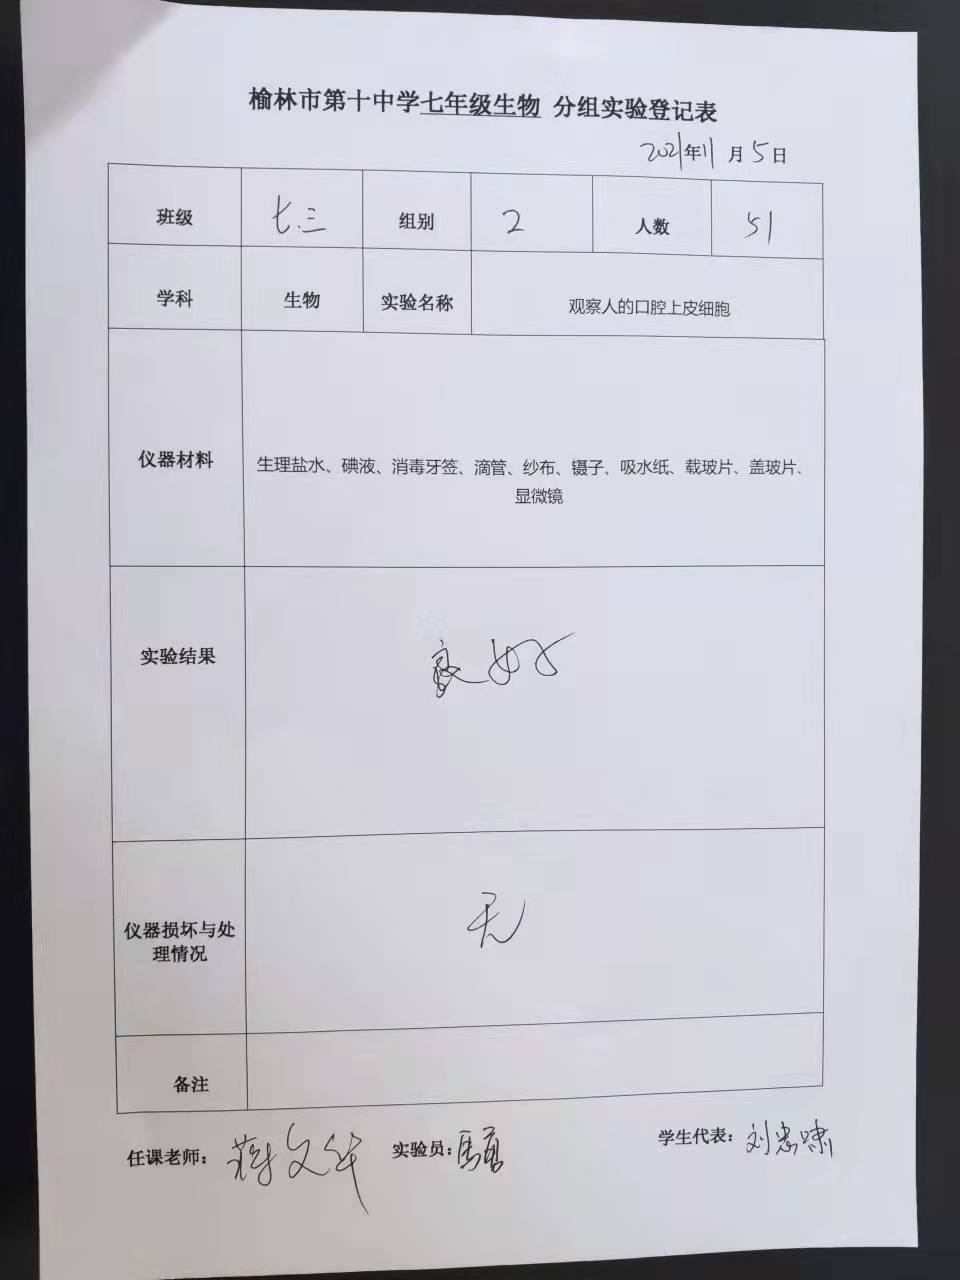 榆林市第十中学七年级生物 分组实验登记表
2021年11月5日
班级 七.三 组别 2 人数 51
学科 生物 实验名称 观察人的口腔上皮细胞
仪器材料 生理盐水、碘液、消毒牙签、滴管、纱布、镊子、吸水纸、载玻片、盖玻片、
显微镜
实验结果 良好
仪器损坏与处
理情况 无
备注
任课老师：蒋文华 实验员： 学生代表：刘忠啸